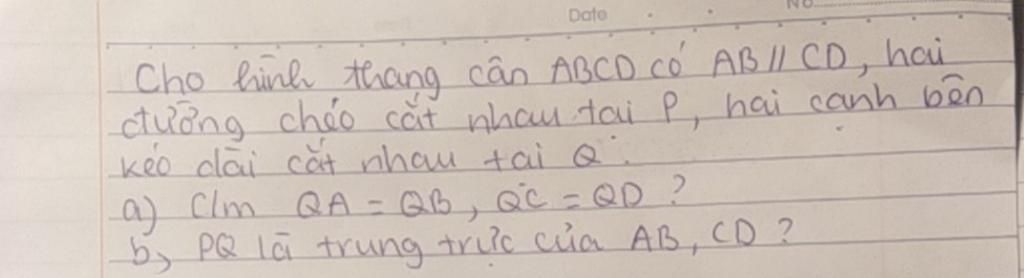 Date
No
Cho hình thang cân ABCD có AB // CD, hai
đường chéo cắt nhau tại P, hai cạnh bên
kéo dài cắt nhau tại Q.
a) C/m QA = QB, QC = QD ?
b) PQ là trung trực của AB, CD ?